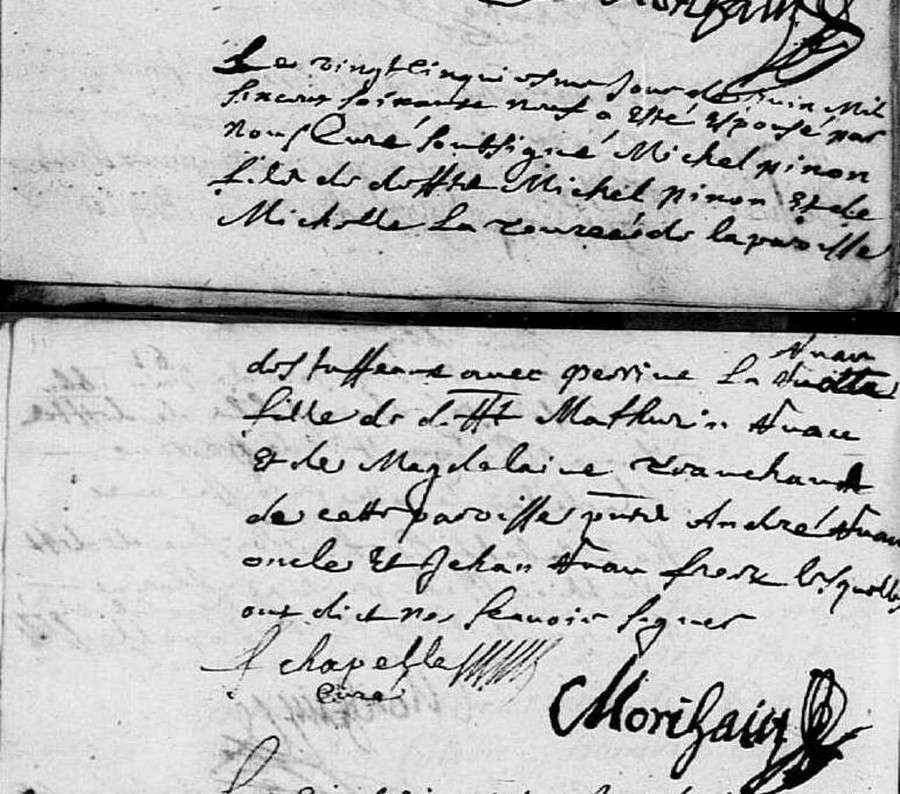 Morihain
Le vingt cinquiesme Jour de Juin Mil
sixcens soixante neuf a Esté Espousé par
nous Curé soubsigné Michel pinon
filz de defft Michel pinon Et de
Michelle La de la paroisse
des avec perrine La
fille de defft Mathurin
Et de Magdelaine
de cette paroisse pnts André
oncle Et Jehan frere lesquelz
ont dict ne scavoir signer
chapelle
Curé
Morihain